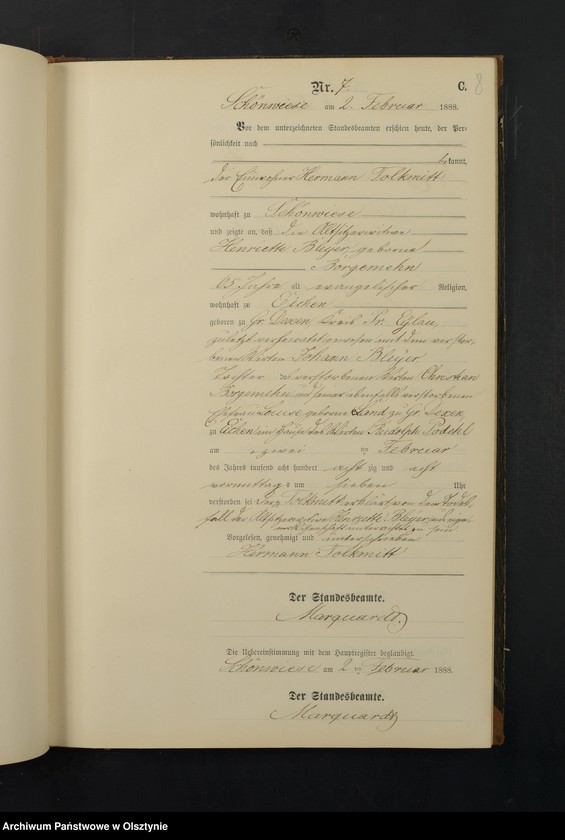 Nr. 7 C. 8
Schönwiese am 2. Februar 1888.
Vor dem unterzeichneten Standesbeamten erschien heute, der Per-
sönlichkeit nach
bekannt,
der Einwohner Hermann Tolkmitt
wohnhaft zu Schönwiese
und zeigte an, daß die Altsitzerwitwe
Henriette Bleyer, geborene
Borgemehn
65 Jahre alt evangelischer Religion,
wohnhaft zu Eichen
geboren zu Gr. Dexen, Kreis Pr. Eylau,
zuletzt verheirathet gewesen mit dem verstor-
benen Johann Bleyer
Tochter des verstorbenen Christian
Borgemehn und seiner ebenfalls verstorbenen
Ehefrau Louise geborene Sand zu Gr. Dexen
zu Eichen im Hause des Rudolph Podehl
am zwei ten Februar
des Jahres tausend acht hundert acht zig und acht
vormittags um sieben Uhr
verstorben sei. Tolkmitt erklärt von dem Todes-
fall der Altsitzerwitwe Henriette Bleyer aus eige-
ner Wissenschaft unterrichtet zu sein
Vorgelesen, genehmigt und unterschrieben
Hermann Tolkmitt
Der Standesbeamte.
Marquardt.
Die Uebereinstimmung mit dem Hauptregister beglaubigt.
Schönwiese am 2 ten Februar 1888.
Der Standesbeamte.
Marquardt
Archiwum Państwowe w Olsztynie